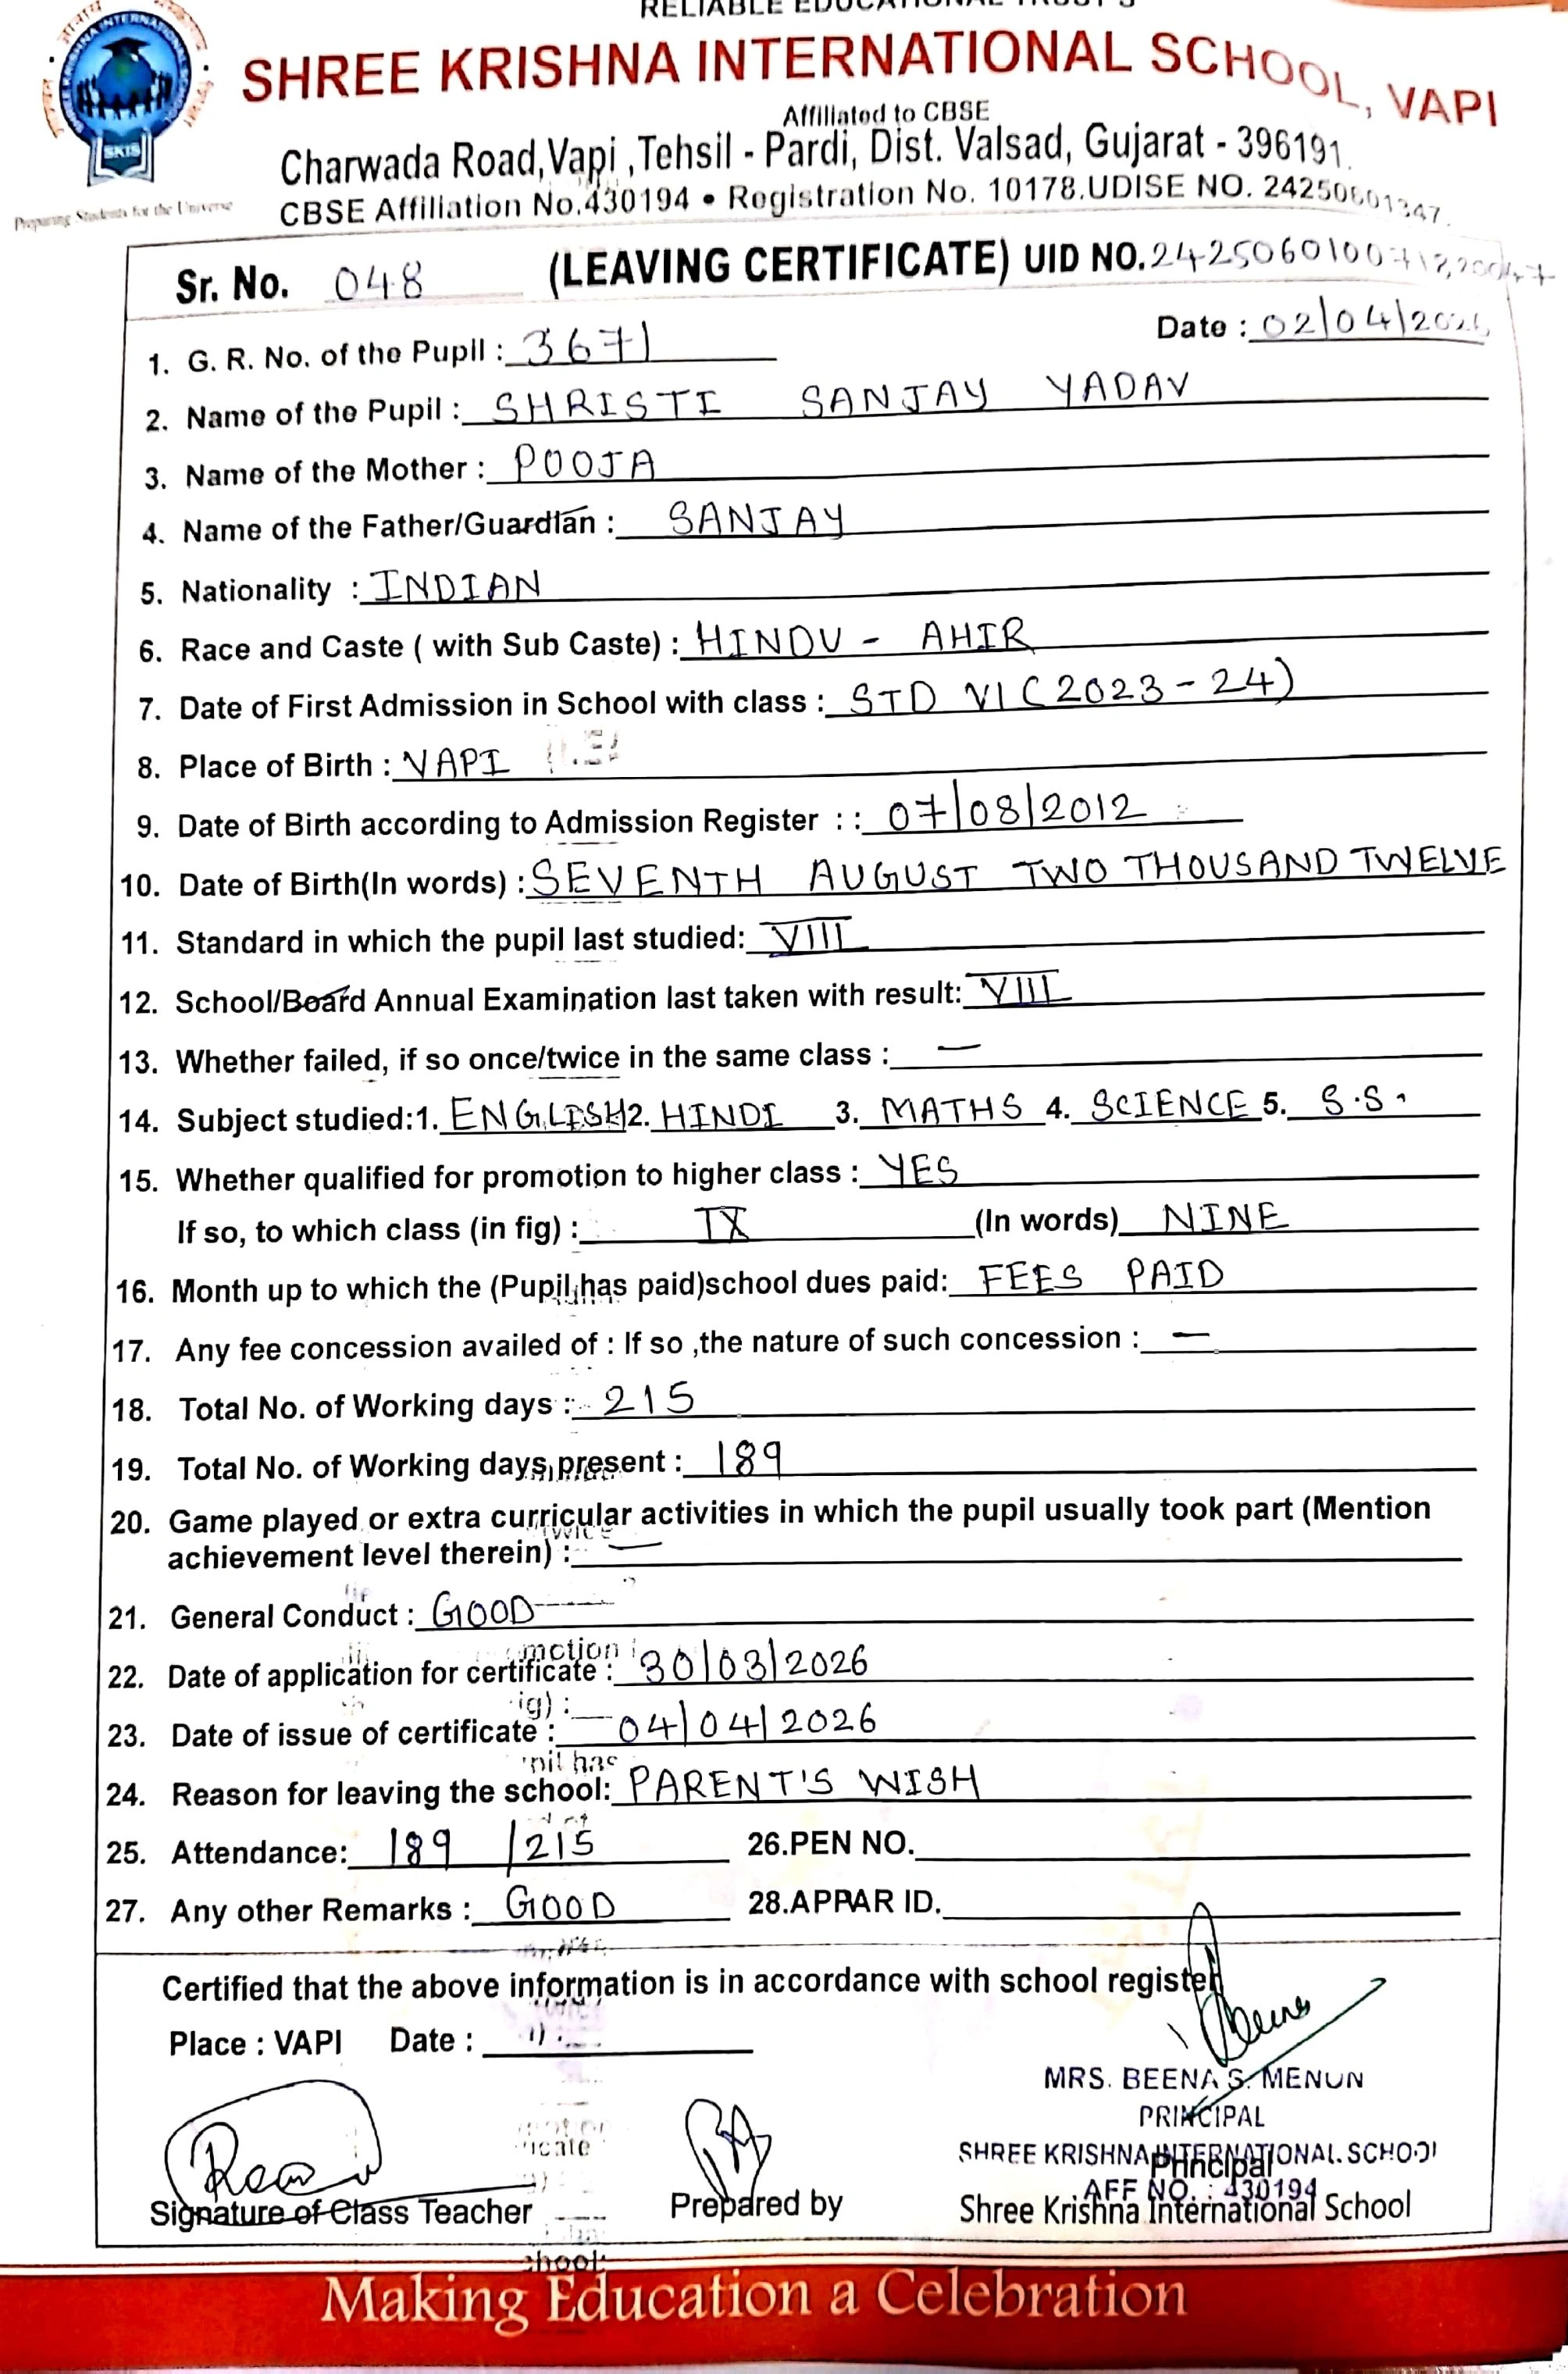 RELIABLE EDUCATIONAL TRUST'S
SHREE KRISHNA INTERNATIONAL SCHOOL, VAPI
Affiliated to CBSE
Charwada Road,Vapi ,Tehsil - Pardi, Dist. Valsad, Gujarat - 396191.
CBSE Affiliation No.430194 • Registration No. 10178.UDISE NO. 24250601347.
SKIS
Preparing Students for the Universe
Sr. No. 048 (LEAVING CERTIFICATE) UID NO.
Date : 02/04/2026
1. G. R. No. of the Pupil : 3671
2. Name of the Pupil : SHRISTI SANJAY YADAV
3. Name of the Mother : POOJA
4. Name of the Father/Guardian : SANJAY
5. Nationality : INDIAN
6. Race and Caste ( with Sub Caste) : HINDU - AHIR
7. Date of First Admission in School with class : STD VI (2023-24)
8. Place of Birth : VAPI
9. Date of Birth according to Admission Register : : 07/08/2012
10. Date of Birth(In words) : SEVENTH AUGUST TWO THOUSAND TWELVE
11. Standard in which the pupil last studied: VIII
12. School/Board Annual Examination last taken with result: VIII
13. Whether failed, if so once/twice in the same class : —
14. Subject studied:1. ENGLISH 2. HINDI 3. MATHS 4. SCIENCE 5. S.S.
15. Whether qualified for promotion to higher class : YES
If so, to which class (in fig) : IX (In words) NINE
16. Month up to which the (Pupil has paid)school dues paid: FEES PAID
17. Any fee concession availed of : If so ,the nature of such concession : —
18. Total No. of Working days : 215
19. Total No. of Working days present : 189
20. Game played or extra curricular activities in which the pupil usually took part (Mention
achievement level therein) : —
21. General Conduct : GOOD
22. Date of application for certificate : 30/03/2026
23. Date of issue of certificate : 04/04/2026
24. Reason for leaving the school: PARENT'S WISH
25. Attendance: 189 /215 26.PEN NO.
27. Any other Remarks : GOOD 28.APPAR ID.
Certified that the above information is in accordance with school register
Place : VAPI Date :
MRS. BEENA S. MENON
PRINCIPAL
SHREE KRISHNA INTERNATIONAL SCHOOL
AFF NO. : 430194
Signature of Class Teacher Prepared by Principal
Shree Krishna International School
Making Education a Celebration